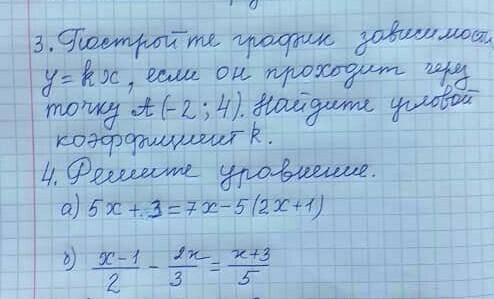 3. Постройте график зависимости
y=kx, если он проходит через
точку A(-2; 4). Найдите угловой
коэффициент k.
4. Решите уравнение.
а) 5x + 3 = 7x - 5(2x+1)
б) (x-1)/2 - 2x/3 = (x+3)/5